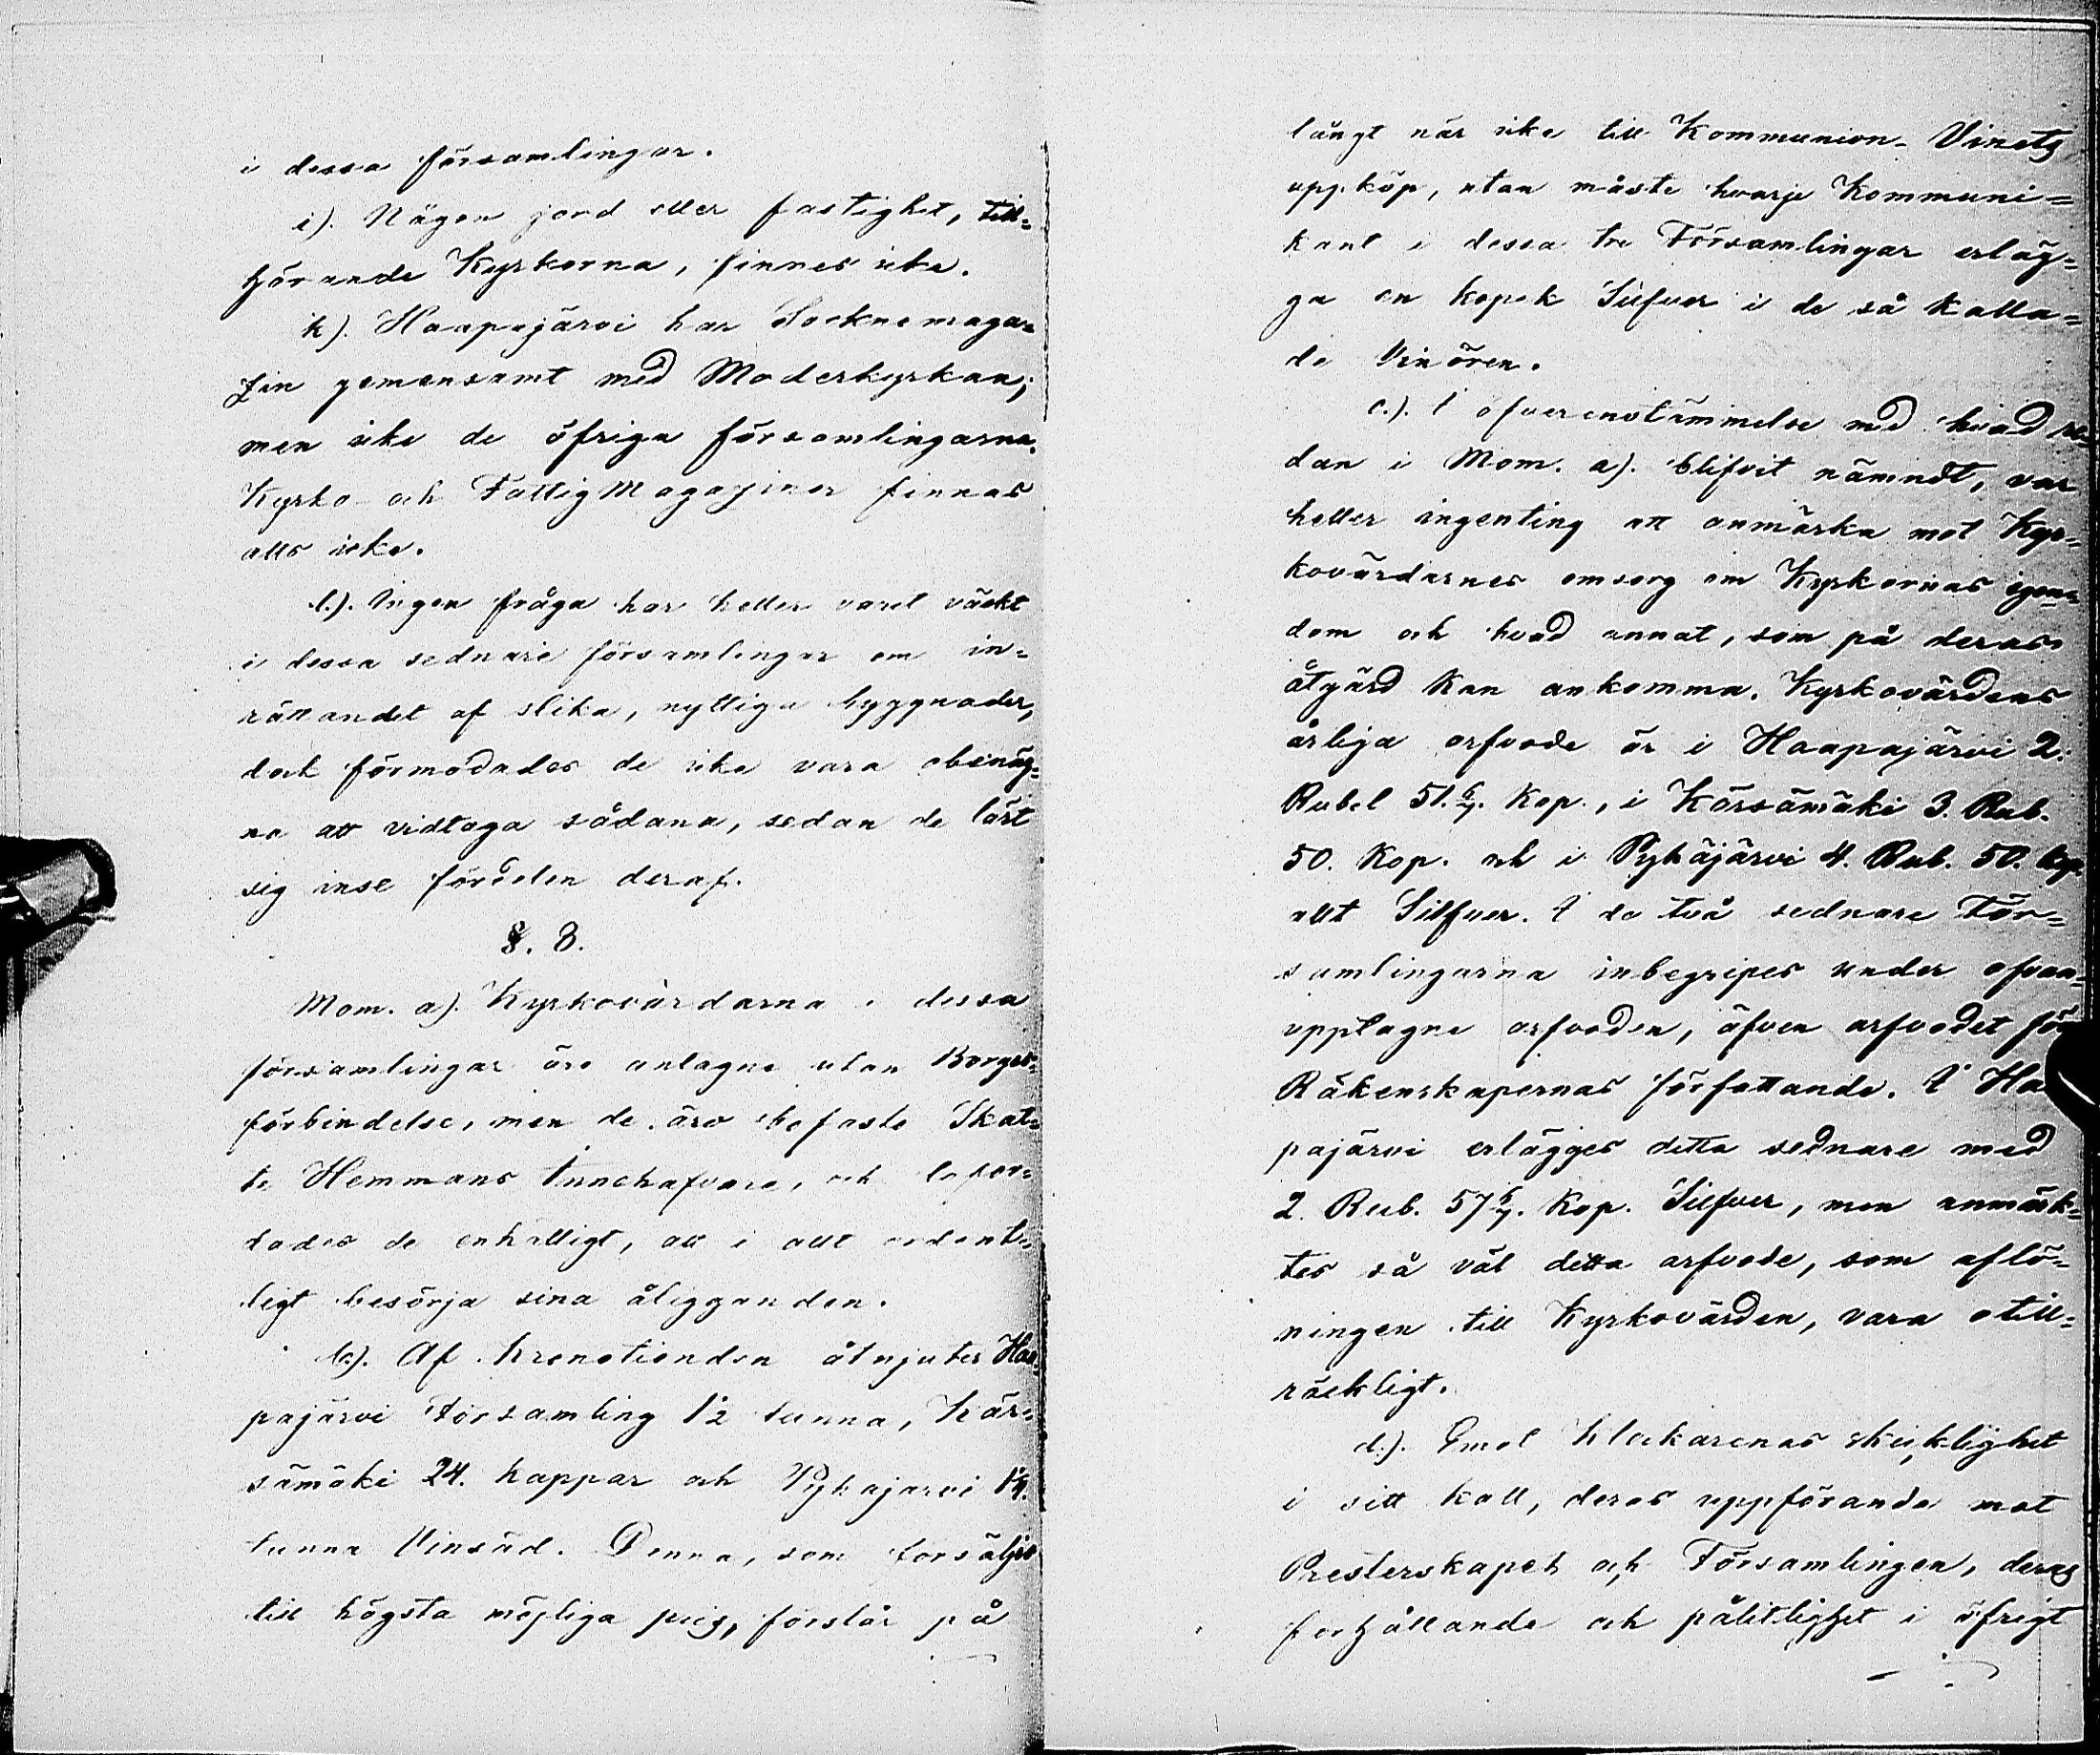 i dessa församlingar.
i). Någon jord eller fastighet, till=
hörande Kyrkorna, finnes icke.
k). Haapajärvi har Socknemaga=
zin gemensamt med Moderkyrkan;
men icke de öfriga församlingarna.
Kyrko- och FattigMagaziner finnas
alls icke.
l.). Ingen fråga har heller varit väckt
i dessa sednare församlingar om in=
rättandet af slika, nyttiga byggnader,
dock förmodades de icke vara obenäg=
na att vidtaga sådana, sedan de lärt
sig inse fördelen deraf.
§. 8.
Mom. a). Kyrkovärdarna i dessa
församlingar äro antagne utan Borges=
förbindelse, men de äro bofaste Skat=
te Hemmans Innehafvare, och lofor=
dades de enhälligt, att i allt ordent=
ligt besörja sina åligganden.
b). Af Kronotienden åtnjuter Haa=
pajärvi Församling 1½ tunna, Kär=
sämäki 24. kappar och Pyhäjärvi 1¼.
tunna Vinsäd. Denna, som försäljes
till högsta möjliga pris, förslår på
långt när icke till Kommunion-Vinets
uppköp, utan måste hvarje Kommuni=
kant i dessa tre Församlingar erläg=
ga en kopek Silfver i de så kalla=
de Vinören.
c.). I öfverenstämmelse med hvad re=
dan i Mom. a). blifvit nämndt, var
heller ingenting att anmärka mot Kyr=
kovärdarnes omsorg om Kyrkornas egen=
dom och hvad annat, som på deras
åtgärd kan ankomma. Kyrkovärdens
årliga arfvode är i Haapajärvi 2.
Rubel 51. 6/7. Kop., i Kärsämäki 3. Rub.
50. Kop. och i Pyhäjärvi 4. Rub. 50. Kop.
allt Silfver. I de två sednare För=
samlingarna inbegripes under ofvan=
upptagne arfvoden, äfven arfvodet för
Räkenskapernas författande. I Haa
pajärvi erlägges detta sednare med
2. Rub. 57 1/7. Kop. Silfver, men anmärk=
tes så väl detta arfvode, som aflö=
ningen till Kyrkovärden, vara otill=
räckligt.
d.). Emot Klockarenas skicklighet
i sitt kall, deras uppförande mot
Presterskapet och Församlingen, deras
förhållande och pålitlighet i öfrigt